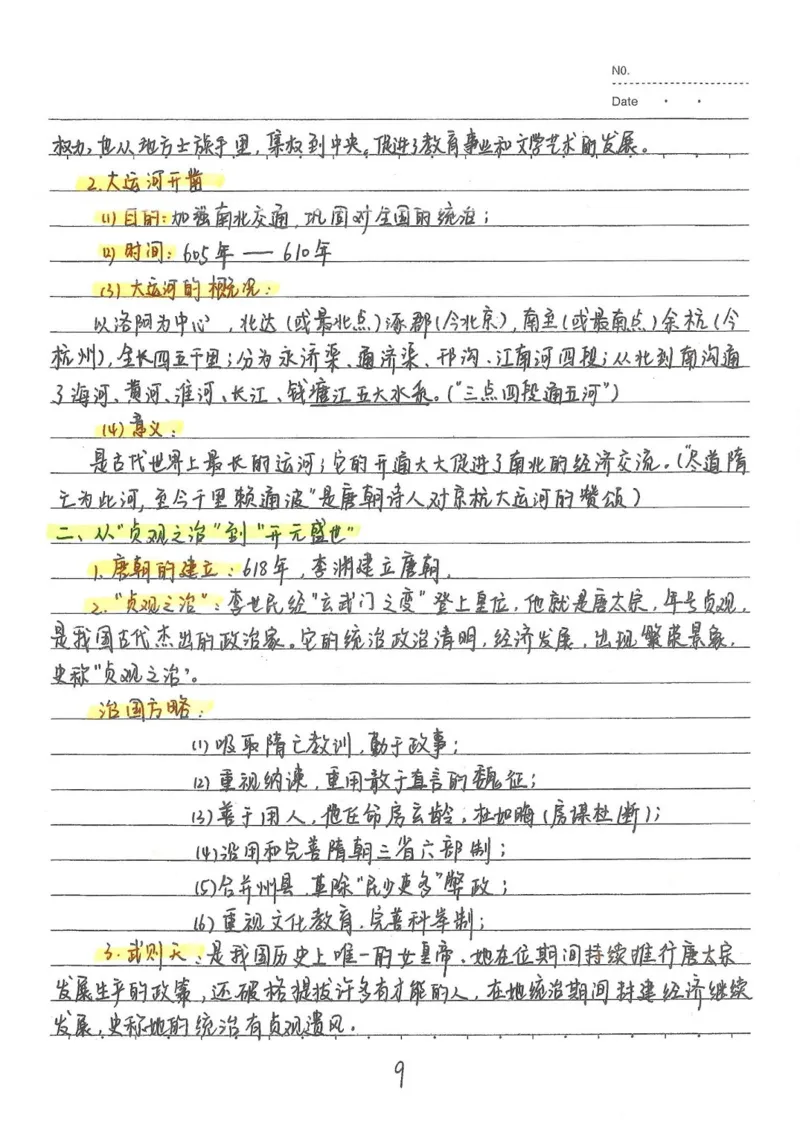 NO.
Date
权力,也从地方士族手里,集权到中央。促进了教育事业和文学艺术的发展。
2.大运河开凿
(1)目的:加强南北交通,巩固对全国的统治;
(2)时间:605年——610年
(3)大运河的概况:
以洛阳为中心,北达(或最北点)涿郡(今北京),南至(或最南点)余杭(今
杭州),全长四五千里;分为永济渠、通济渠、邗沟、江南河四段;从北到南沟通
了海河、黄河、淮河、长江、钱塘江五大水系。("三点四段通五河")
(4)意义:
是古代世界上最长的运河;它的开通大大促进了南北的经济交流。("尽道隋
亡为此河,至今千里赖通波"是唐朝诗人对京杭大运河的赞颂)
二、从"贞观之治"到"开元盛世"
1.唐朝的建立:618年,李渊建立唐朝。
2."贞观之治":李世民经"玄武门之变"登上皇位,他就是唐太宗,年号贞观,
是我国古代杰出的政治家。它的统治政治清明,经济发展,出现繁荣景象,
史称"贞观之治"。
治国方略:
(1)吸取隋亡教训,勤于政事;
(2)重视纳谏,重用敢于直言的魏征;
(3)善于用人,他任命房玄龄,杜如晦(房谋杜断);
(4)沿用和完善隋朝三省六部制;
(5)合并州县,革除"民少吏多"弊政;
(6)重视文化教育,完善科举制;
3.武则天:是我国历史上唯一的女皇帝、她在位期间持续推行唐太宗
发展生产的政策,还破格提拔许多有才能的人,在她统治期间封建经济继续
发展,史称她的统治有贞观遗风。
9